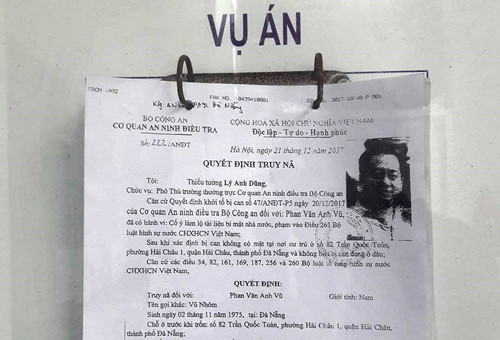 VỤ ÁN
FROM :A92
FAX NO. :0439410081
2017 10:40 P 001
Kg: ANĐT PA91 Đà Nẵng
BỘ CÔNG AN
CỘNG HÒA XÃ HỘI CHỦ NGHĨA VIỆT NAM
CƠ QUAN AN NINH ĐIỀU TRA
Độc lập - Tự do - Hạnh phúc
Số: 222/ANĐT
Hà Nội, ngày 21 tháng 12 năm 2017
QUYẾT ĐỊNH TRUY NÃ
Tôi: Thiếu tướng Lý Anh Dũng,
Chức vụ: Phó Thủ trưởng thường trực Cơ quan An ninh điều tra Bộ Công an
Căn cứ Quyết định khởi tố bị can số 47/ANĐT-P5 ngày 20/12/2017
của Cơ quan An ninh điều tra Bộ Công an đối với: Phan Văn Anh Vũ,
đã có hành vi: Cố ý làm lộ tài liệu bí mật nhà nước, phạm vào Điều 263 Bộ
luật hình sự nước CHXHCN Việt Nam,
Sau khi xác định bị can không có mặt tại nơi cư trú ở số 82 Trần Quốc Toản,
phường Hải Châu 1, quận Hải Châu, thành phố Đà Nẵng và không biết bị can đang ở đâu;
Căn cứ các điều 34, 82, 161, 169, 187, 256 và 260 Bộ luật tố tụng hình sự nước
CHXHCN Việt Nam,
QUYẾT ĐỊNH:
Truy nã đối với: Phan Văn Anh Vũ Giới tính: Nam
Tên gọi khác: Vũ Nhôm
Sinh ngày 02 tháng 11 năm 1975, tại: Đà Nẵng
Chỗ ở trước khi trốn: số 82 Trần Quốc Toản, phường Hải Châu 1, quận Hải Châu,
thành phố Đà Nẵng;